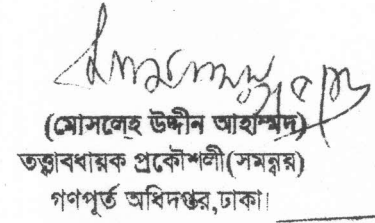 (মোসলেহ উদ্দীন আহাম্মদ)
তত্ত্বাবধায়ক প্রকৌশলী(সমন্বয়)
গণপূর্ত অধিদপ্তর,ঢাকা।